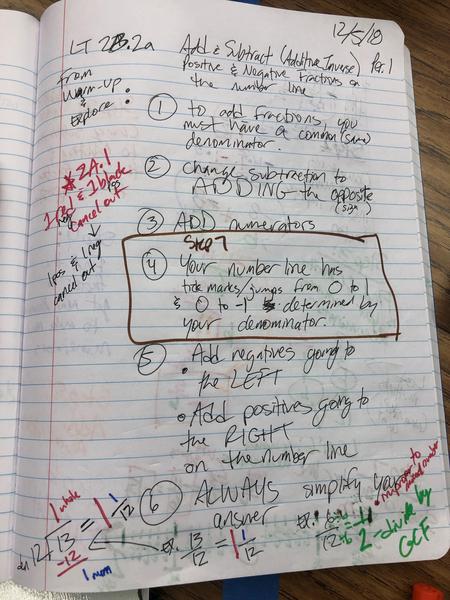 12/5/18
LT 2B.2a
Add & Subtract (Additive Inverse) Per. 1
Positive & Negative Fractions on
the number line
From
Warm-up
&
Explore:
① to add fractions, you
must have a common (same)
denominator.
② change subtraction to
ADDING the opposite
(sign)
* 2A.1
1 red & 1 black
neg pos
cancel out
↓
1 pos & 1 neg
cancel out
③ ADD numerators
Step 7
④ Your number line has
tick marks/jumps from 0 to 1
& 0 to -1 determined by
your denominator.
⑤ • Add negatives going to
the LEFT
• Add positives going to
the RIGHT
on the number line
⑥ ALWAYS simplify your
answer
• improper to
mixed number
1 whole
12 13 = 1 1/12
-12
1 num
ex. 13/12 = 1 1/12
ex.
2 - divide by
GCF